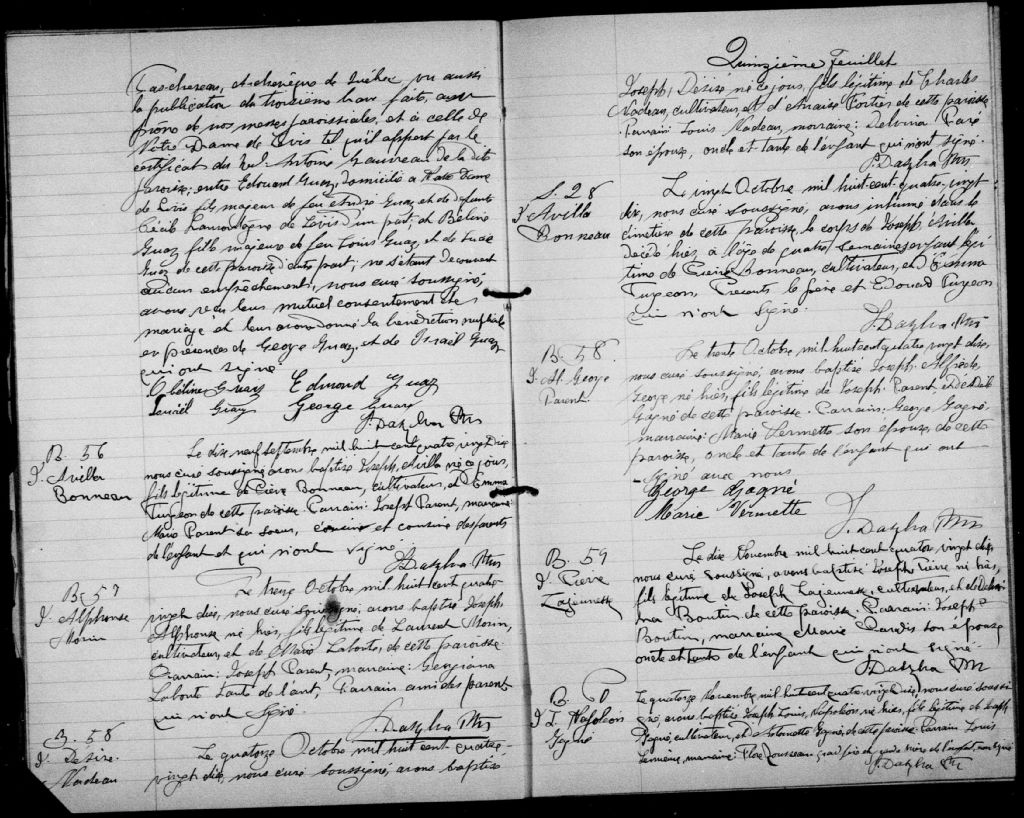 Taschereau, archevêque de Québec vu aussi
la publication de troisième ban faite au
prône de nos messes paroissiales, et à celle de
Notre Dame de Lévis tel qu'il appert par le
certificat du Rvd. Antoine Gauvreau de la dite
paroisse; entre Edouard Guay, domicilié à Notre Dame
de Lévis fils majeur de feu André Guay, et de défunte
Cécile de Lévis d'un part, et Beline
Guay fille majeure de feu Louis Guay, et de Luce
Guay de cette paroisse d'autre part; ne s'étant découvert
aucun empêchement, nous curé soussigné,
avons reçu leur mutuel consentement de
mariage et leur avons donné la bénédiction nuptiale
en présences de George Guay, et de Israël Guay
qui ont signé.
Obéline Guay Edmond Guay
Ismaël Guay George Guay
J. Dazylva Ptr
B. 56
J. Avilla
Bonneau
Le dix neuf septembre mil huit cent quatre vingt Dix
nous curé soussigné avons baptisé Joseph, Avilla né ce jour,
fils légitime de Pierre Bonneau, cultivateur, et d'Emma
Turgeon de cette paroisse Parrain: Joseph Parent, marraine
Marie Parent sa soeur, cousin et cousine des parents
de l'enfant et qui n'ont signé.
J. Dazylva Ptr
B. 57
J. Alphonse
Morin
Le treize Octobre mil huit cent quatre
vingt dix, nous curé soussigné, avons baptisé Joseph
Alphonse né hier, fils légitime de Laurent Morin,
cultivateur, et de Marie Labonté, de cette paroisse.
Parrain: Joseph Parent, marraine: Georgiana
Labonté tante de l'enf, Parrain ami des parent
qui n'ont signé.
J. Dazylva Ptr
B. 58
J. Désiré
Nadeau
Le quatorze Octobre mil huit cent quatre-
vingt dix, nous curé soussigné, avons baptisé
Quinzième feuillet
Joseph, Désiré né ce jour, fils légitime de Charles
Nadeau, cultivateur, et d'Emaire Fortier de cette paroisse
Parrain Louis Nadeau, marraine: Delvina Paré
son épouse, oncle et tante de l'enfant qui n'ont signé.
J. Dazylva Ptr
S. 28
J. Avilla
Bonneau
Le vingt Octobre mil huit-cent-quatre-vingt
dix, nous curé soussigné, avons inhumé dans le
cimetière de cette paroisse le corps de Joseph, Avilla
décédé hier à l'âge de quatre semaines enfant légi-
time de Pierre Bonneau, cultivateur, et d'Emma
Turgeon, Présents le père et Edouard Turgeon
qui n'ont signé.
J. Dazylva Ptr
B. 58.
J. Al. George
Parent.
Le trente Octobre mil huit cent quatre vingt dix,
nous curé soussigné, avons baptisé Joseph, Alfred,
George, né hier, fils légitime de Joseph Parent et d'Adèle
Gagné de cette paroisse. Parrain: George Gagné
marraine: Marie Vermette son épouse de cette
paroisse, oncle et tante de l'enfant qui ont
signé avec nous
George Gagné
Marie Vermette
J. Dazylva Ptr
B. 59
J. Pierre
Lajeunesse
Le dix Novembre mil huit cent quatre vingt dix,
nous curé soussigné, avons baptisé Joseph Pierre né hier,
fils légitime de Joseph Lajeunesse, cultivateur, et de
Boutin de cette paroisse. Parrain: Joseph
Boutin, marraine Marie son épouse
oncle et tante de l'enfant qui n'ont signé.
J. Dazylva Ptr
B. 60
J. L. Napoléon
Gagné
Le quatorze Novembre mil huit cent quatre vingt Dix, nous curé soussi
gné, avons baptisé Joseph Louis, Napoléon né hier, fils légitime de Joseph
Gagné, cultivateur, et de Gagné, de cette paroisse Parrain Louis
marraine: Flore Rousseau, grand père et grande mère de l'enfant, non signé
J. Dazylva Ptr